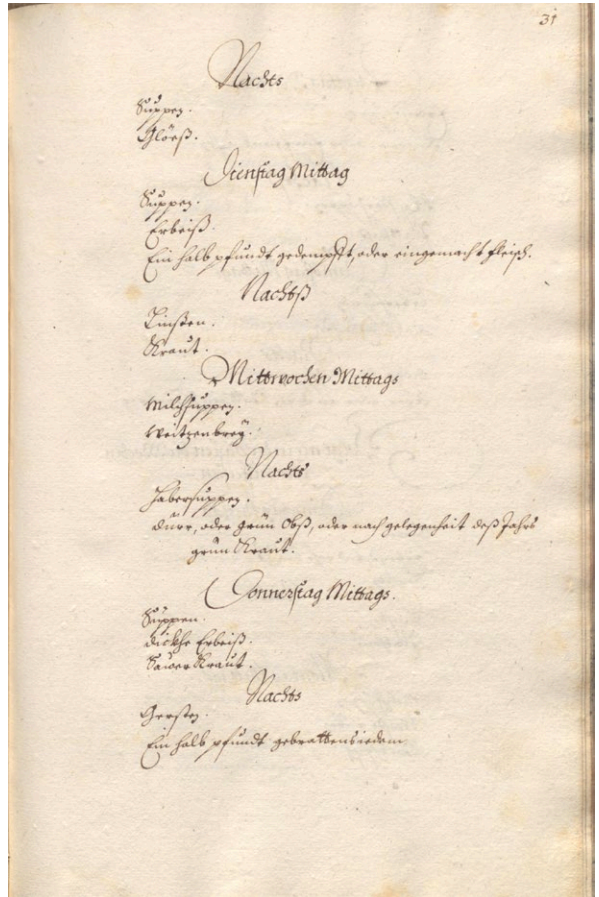 31
Nachts
Suppen.
Glöeß.
Dienstag Mittag
Suppen.
Erbeiß.
Ein halb pfundt gedempfft, oder eingemacht fleisch.
Nachtß
Linßen.
Kraut.
Mittwochen Mittags
Milchsuppen.
Weitzenbrey.
Nachts
Habersuppen.
dürr, oder grün Obß, oder nach gelegenheit deß Jahrs
grün Kraut.
Donnerstag Mittags.
Suppen.
dickhe Erbeiß.
Sawer Kraut.
Nachts
Gersten.
Ein halb pfundt gebrattens iedem